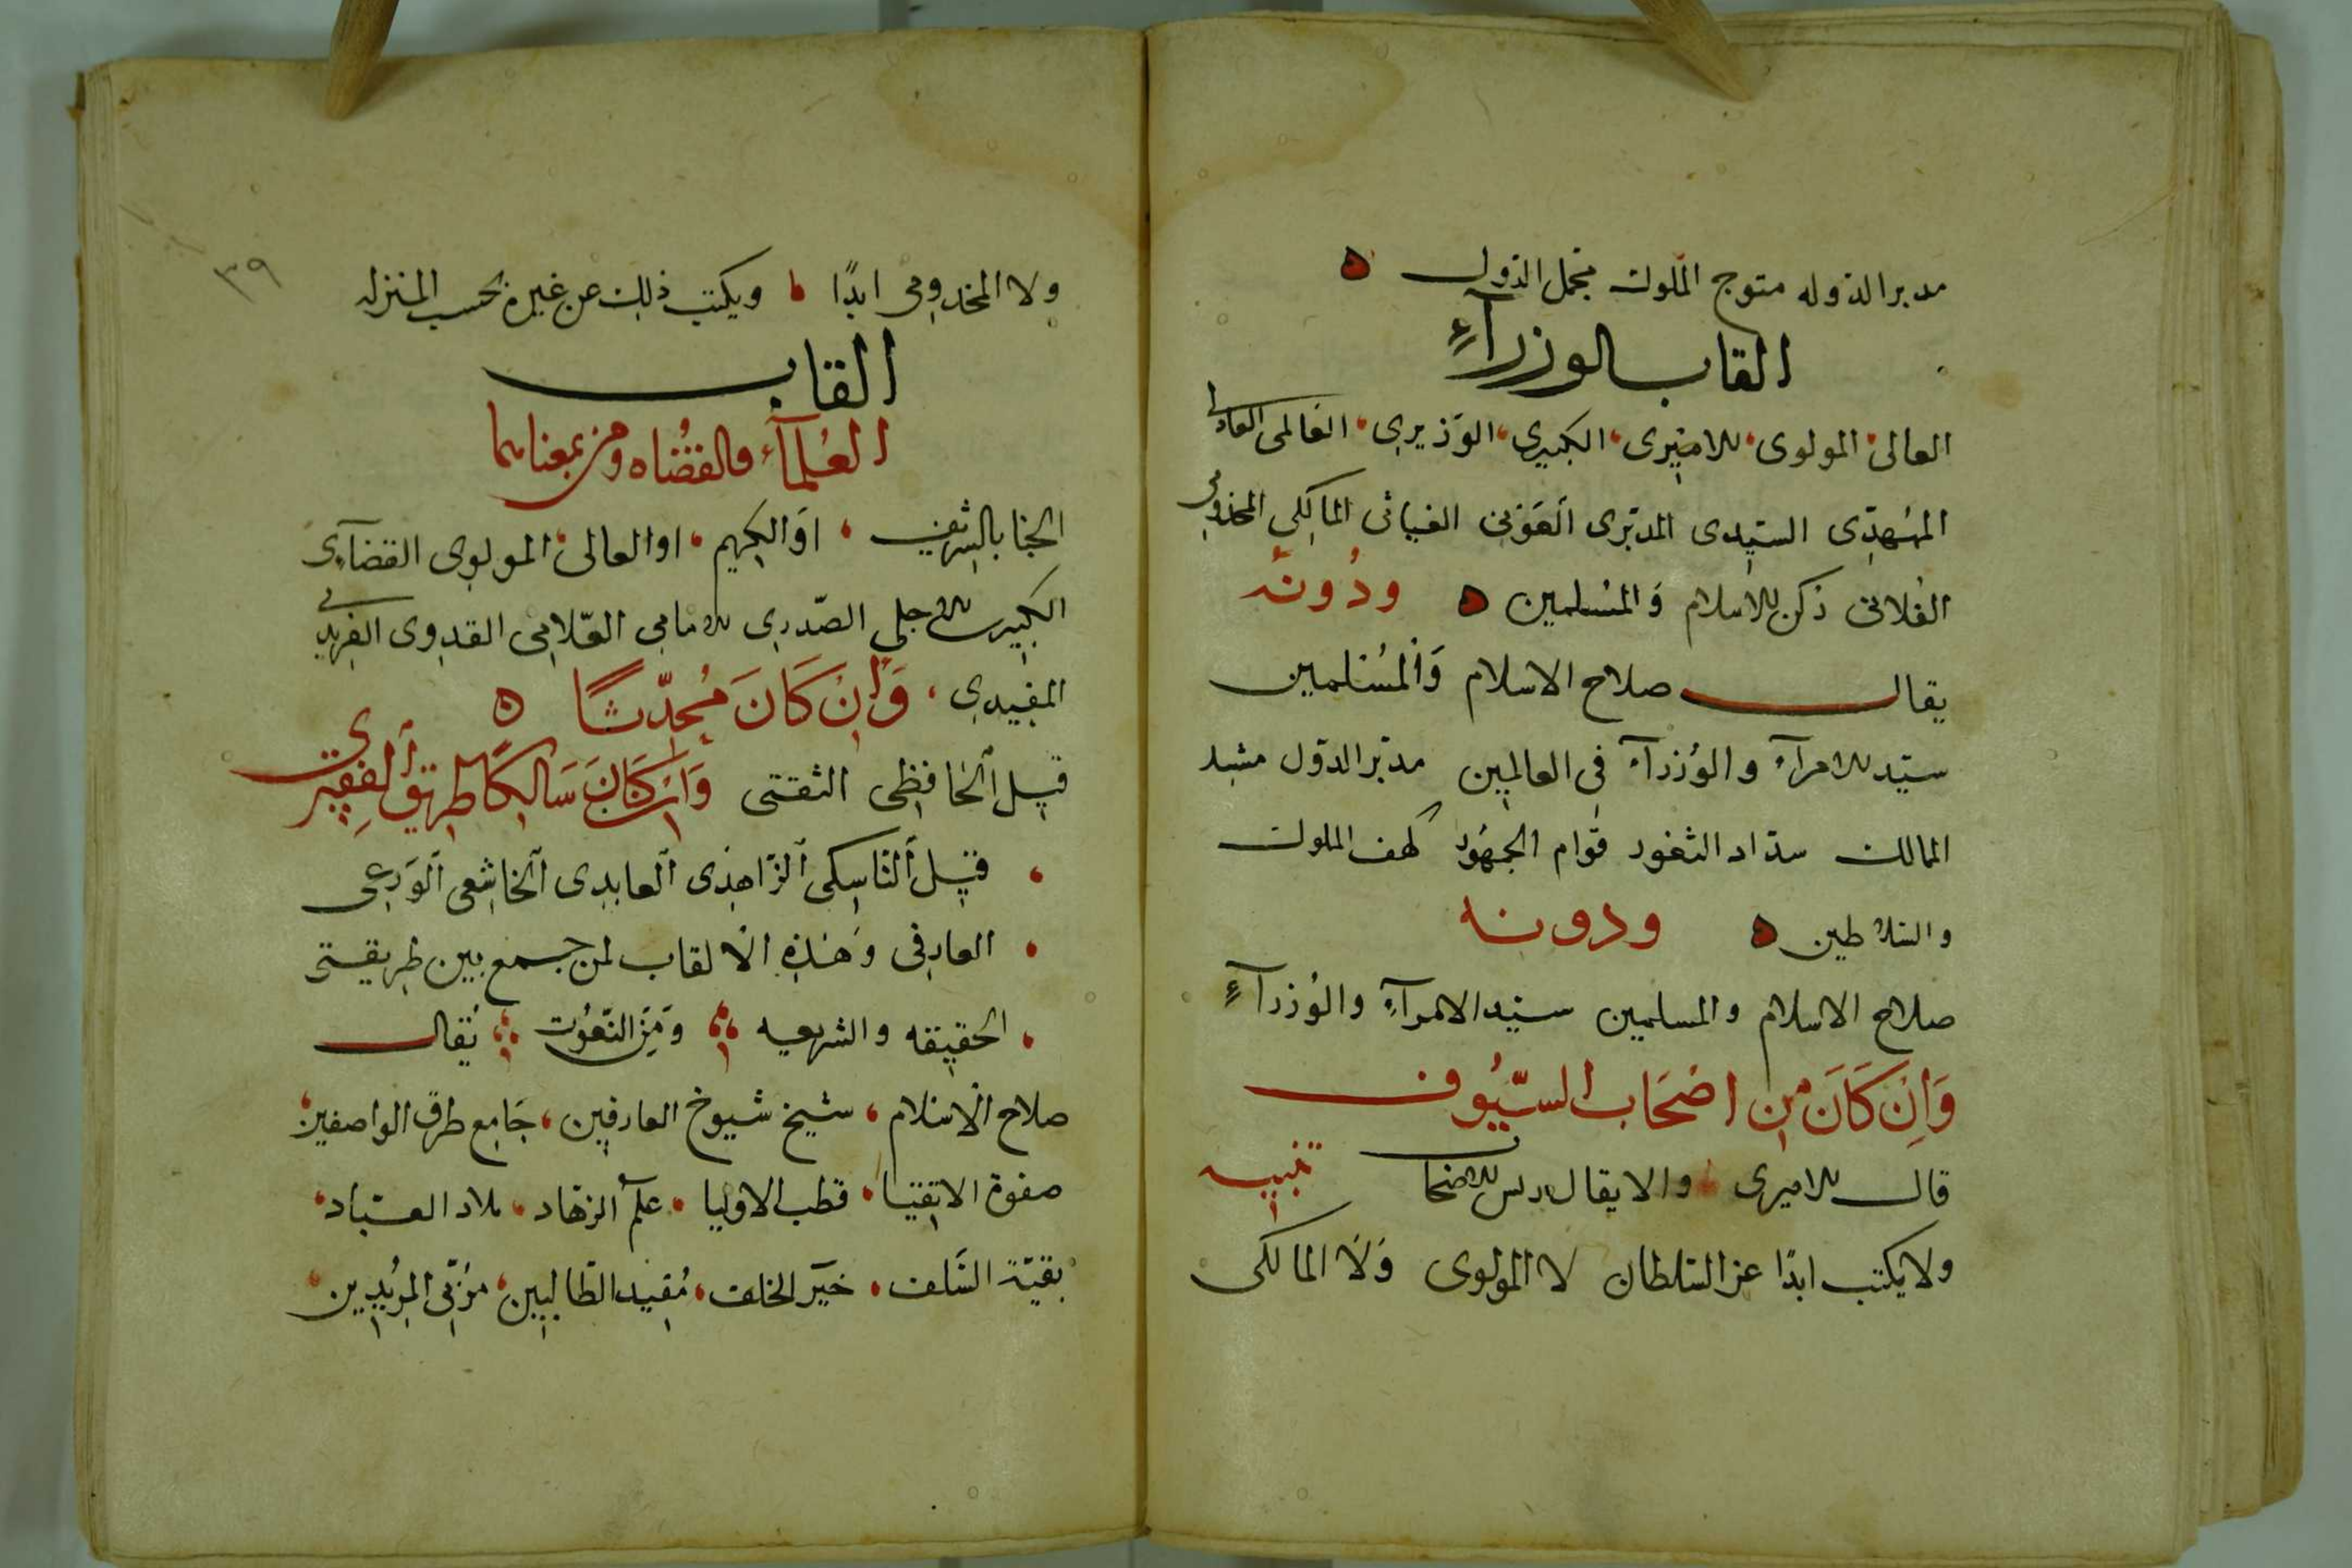 مدبر الدوله متوج الملوك مجمل الدول ه
القاب الوزرآء
العالى المولوى الاميرى الكبيرى الوزيرى العالمى العادلى
الممهدى السيدى المدبرى العونى الغياثى المالكى المخدومى
الفلانى ركن الاسلام والمسلمين ه ودونه
يقال صلاح الاسلام والمسلمين
سيد الامرآء والوزرآء فى العالمين مدبر الدول مشيد
الممالك سداد الثغور قوام الجمهور كهف الملوك
والسلاطين ه ودونه
صلاح الاسلام والمسلمين سيد الامرآء والوزرآء
وَاِنْ كَانَ من اصْحَاب السيُوف
قال الاميرى والا يقال تنبيه
ولا يكتب ابدًا عن السلطان لا المولوى وَلَا المالكى
٣٩
ولا المخدومى ابدًا ويكتب ذلك عن غيره بحسب المنزله
القاب
العُلمآء والقضاه ومن بمعناهما
الجناب الشريف او الكريم او العالى المولوى القضآيى
الكبيرى الاجلى الصّدرى الامامى العّلامى القدوى الفريدى
المفيدى وَاِنْ كَانَ مُحدّثًا ه
قيل الحافظى الثقتى وَان كَانَ سَالِكًا طريق الفقر
قيل النَّاسِكى الزَّاهِدى العابدى الخاشعى الوَرعى
العارفى وَهَذِهِ الالقاب لمن جمع بين طريقتى
الحقيقه والشريعه وَمِنَ النّعُوت يُقال
صلاح الاسلام شيخ شيوخ العارفين جَامِع طرق الواصفين
صفوة الاتقيا قطب الاوليا علم الزهاد ملاد العباد
بقيّة السَّلف خَيَر الخلف مُفيد الطّالبين مُرَبّى المُريدين